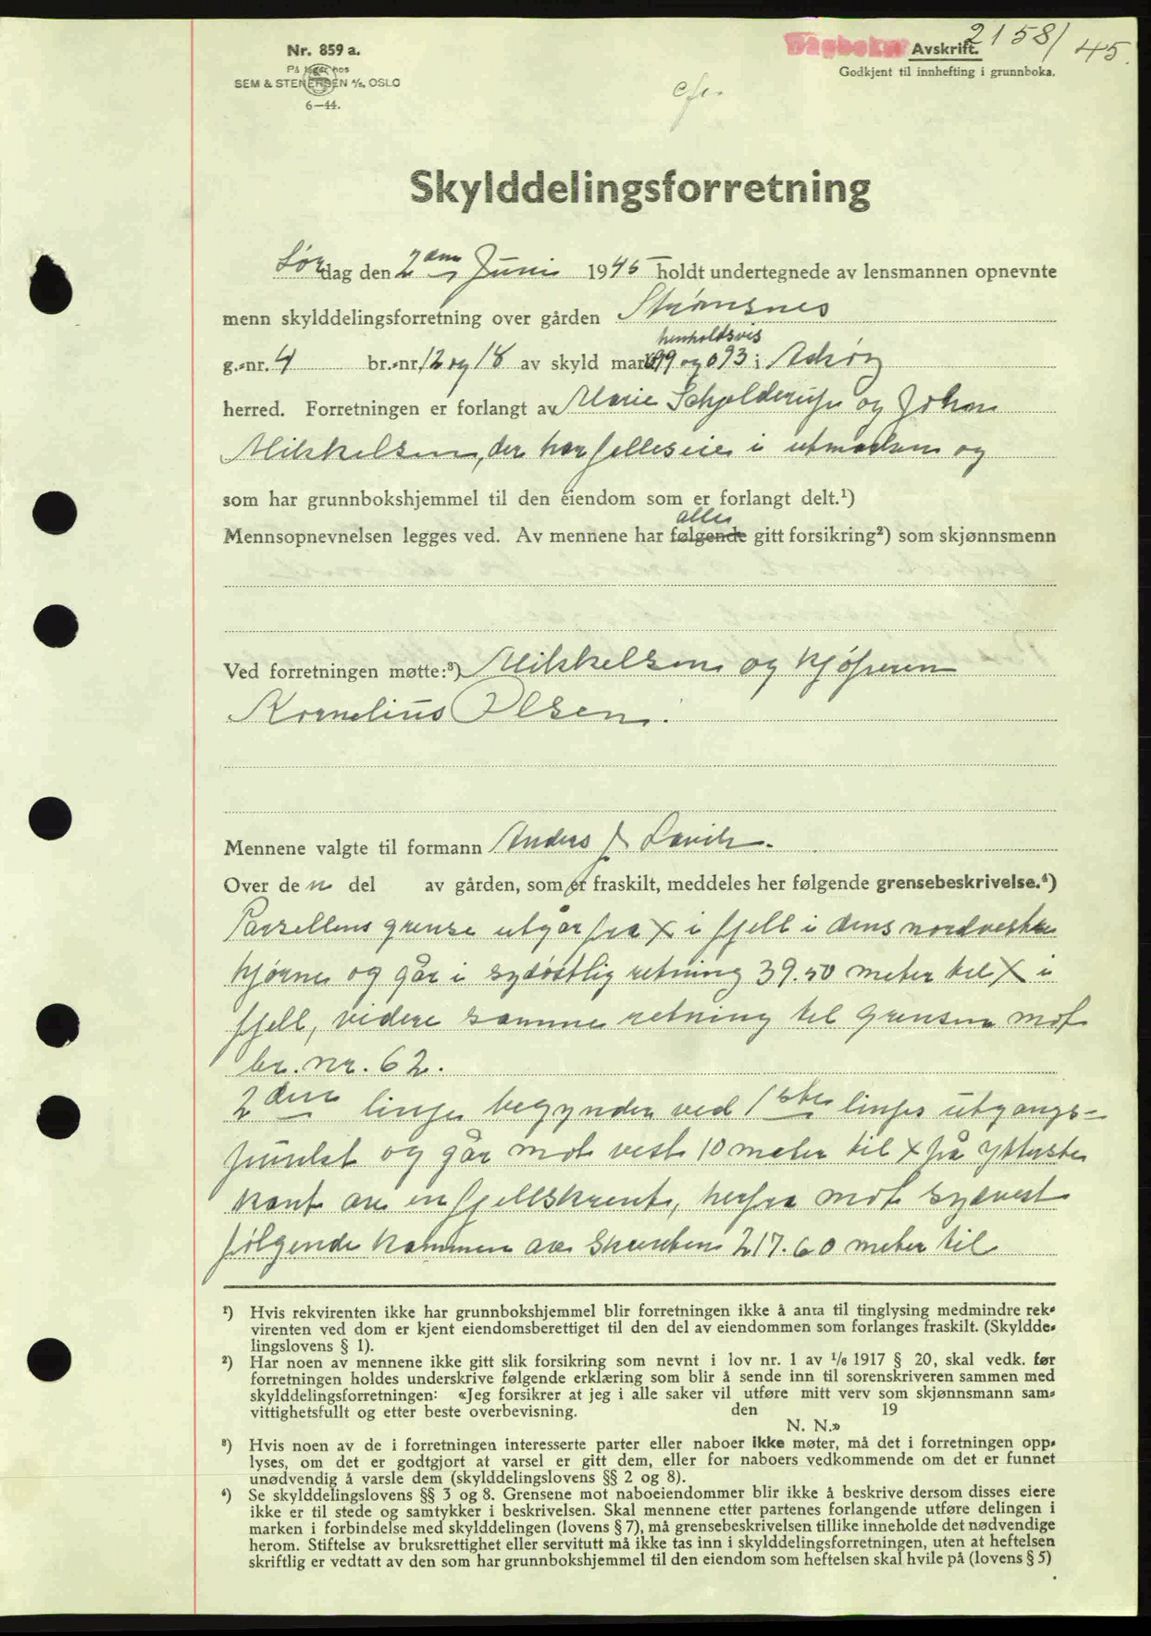 2158/45.
Dagboknr.
Avskrift.
Godkjent til innhefting i grunnboka.
Nr. 859 a.
På lager hos
SEM & STENERSEN A/S, OSLO
6—44.
Skylddelingsforretning
Lørdag den 2den Juni 1945 holdt undertegnede av lensmannen opnevnte
menn skylddelingsforretning over gården Strømsnes
henholdsvis
g.-nr. 4 br.-nr. 12 og 18 av skyld mark 099 og 093 i Askøy
herred. Forretningen er forlangt av Marie Schjelderup og Johan
Mikkelsen, der har felleseie i utmarken og
som har grunnbokshjemmel til den eiendom som er forlangt delt.¹)
alle
Mennsopnevnelsen legges ved. Av mennene har følgende gitt forsikring²) som skjønnsmenn
Ved forretningen møtte:³) Mikkelsen og kjøperen
Kornelius Olsen.
Mennene valgte til formann Anders J.
Over den del av gården, som er fraskilt, meddeles her følgende grensebeskrivelse.⁴)
Parsellens grense utgår fra X i fjell i dens nordvestre
hjørne og går i sydøstlig retning 39.50 meter til X i
fjell, videre samme retning til grensen mot
br. nr. 62.
2den linje begynder ved 1ste linjes utgangs-
punkt og går mot vest 10 meter til X på ytterste
kant av en fjellskrent, herfra mot sydvest
følgende kammen av skrenten 217.60 meter til
¹) Hvis rekvirenten ikke har grunnbokshjemmel blir forretningen ikke å anta til tinglysing medmindre rek-
virenten ved dom er kjent eiendomsberettiget til den del av eiendommen som forlanges fraskilt. (Skyldde-
lingslovens § 1).
²) Har noen av mennene ikke gitt slik forsikring som nevnt i lov nr. 1 av 1/6 1917 § 20, skal vedk. før
forretningen holdes underskrive følgende erklæring som blir å sende inn til sorenskriveren sammen med
skylddelingsforretningen: «Jeg forsikrer at jeg i alle saker vil utføre mitt verv som skjønnsmann sam-
vittighetsfullt og etter beste overbevisning. den 19
N. N.»
³) Hvis noen av de i forretningen interesserte parter eller naboer ikke møter, må det i forretningen opp-
lyses, om det er godtgjort at varsel er gitt dem, eller for naboers vedkommende om det er funnet
unødvendig å varsle dem (skylddelingslovens §§ 2 og 8).
⁴) Se skylddelingslovens §§ 3 og 8. Grensene mot naboeiendommer blir ikke å beskrive dersom disses eiere
ikke er til stede og samtykker i beskrivelsen. Skal mennene etter partenes forlangende utføre delingen i
marken i forbindelse med skylddelingen (lovens § 7), må grensebeskrivelsen tillike inneholde det nødvendige
herom. Stiftelse av bruksrettighet eller servitutt må ikke tas inn i skylddelingsforretningen, uten at heftelsen
skriftlig er vedtatt av den som har grunnbokshjemmel til den eiendom som heftelsen skal hvile på (lovens § 5)